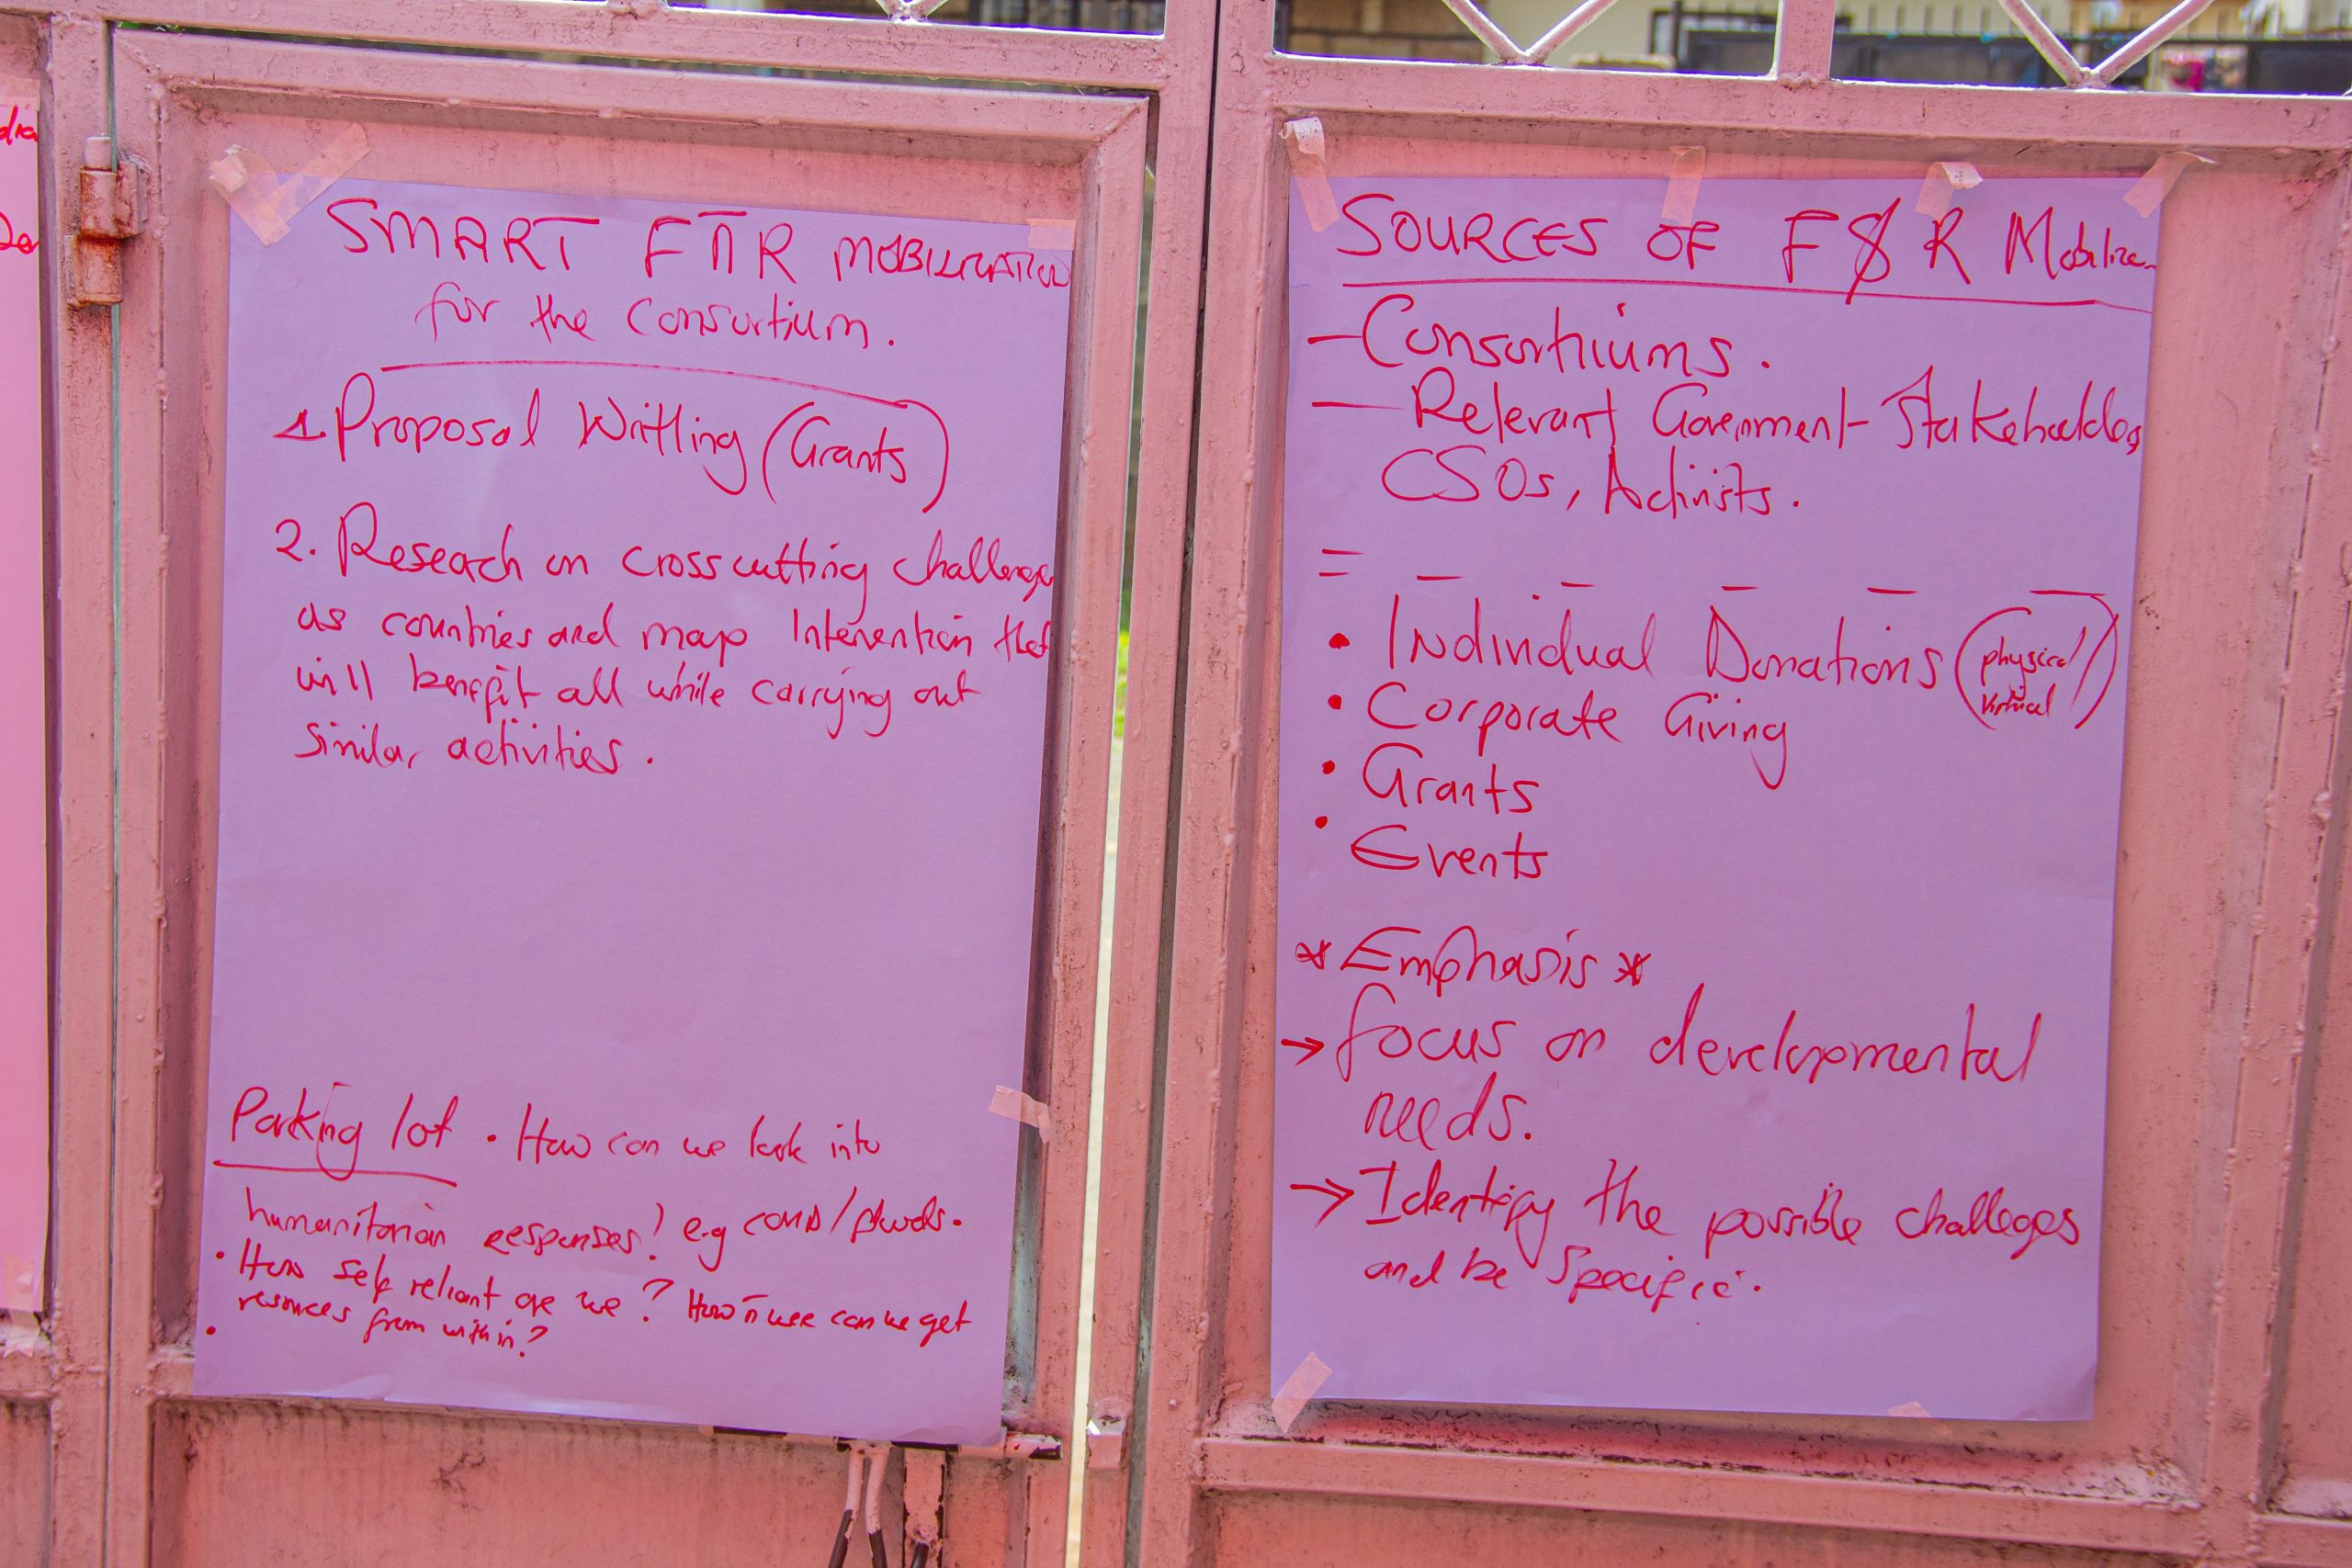 SMART F n R MOBILIZATION
for the Consortium.
1. Proposal Writting (Grants)
2. Reseach on crosscutting challenges
as countries and map Intervention that
will benefit all while carrying out
similar activities.
Parking lot . How can we look into
humanitarian responses! e.g COVID/floods.
• How self reliant are we? How can we get
resources from within?
•
SOURCES OF F $ R Mobiliza
- Consortiums.
- Relevant Government Stakeholders
CSOs, Activists.
=
• Individual Donations (physical/
virtual)
• Corporate Giving
• Grants
• Events
* Emphasis *
→ focus on developmental
needs.
→ Identify the possible challeges
and be Specific.